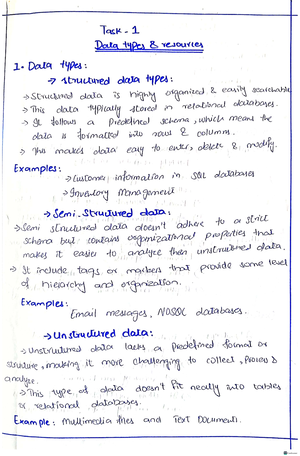 Task - 1
Data types & resources
1. Data types:
→ structured data types:
→ Structured data is highly organized & easily searchable
→ This data typically stored in relational databases.
→ It follows a predefined schema, which means the
data is formatted into rows & columns.
→ This makes data easy to enter, delete & modify.
Examples:
→ Customer information in SQL databases
→ Inventory Management
→ Semi-Structured data:
→ Semi structured data doesn't adhere to a strict
schema but contains organizational properties that
makes it easier to analyze than unstructured data.
→ It include tags or markers that provide some level
of hierarchy and organization.
Examples:
Email messages, NOSQL databases.
→ Unstructured data:
→ Unstructured data lacks a predefined format or
structure, making it more challenging to collect, process &
analyze.
→ This type of data doesn't fit neatly into tables
or relational databases.
Example: Multimedia files and Text Documents.